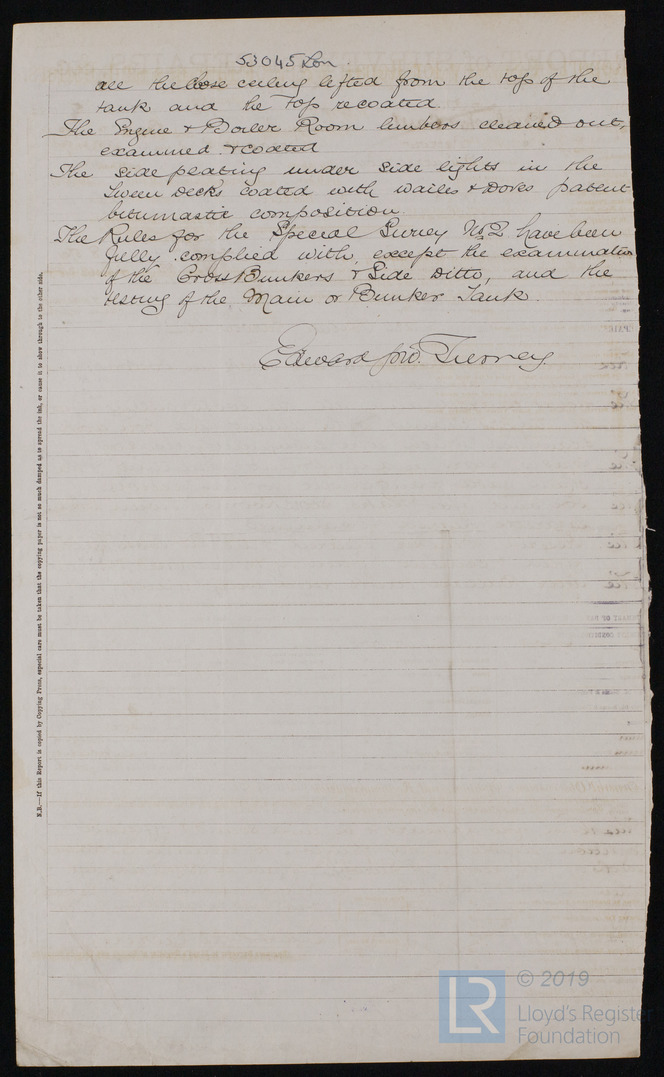 53045 Lon.
all the close ceiling lifted from the top of the
tank and the top recoated.
The Engine & Boiler Room limbers cleaned out,
examined & coated
The side plating under side lights in the
tween decks coated with Wailes & Doves patent
bitumastic composition.
The Rules for the Special Survey No 2 have been
fully complied with, except the examination
of the Cross Bunkers & Side Ditto, and the
testing of the Main or Bunker Tank.
Edward Tierney.
N.B.—If this Report is copied by Copying Press, especial care must be taken that the copying paper is not so much damped as to spread the ink, or cause it to show through to the other side.
© 2019
LR
Lloyd's Register
Foundation